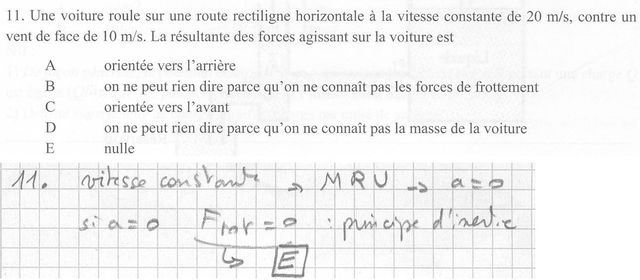 11. Une voiture roule sur une route rectiligne horizontale à la vitesse constante de 20 m/s, contre un
vent de face de 10 m/s. La résultante des forces agissant sur la voiture est
A orientée vers l'arrière
B on ne peut rien dire parce qu'on ne connaît pas les forces de frottement
C orientée vers l'avant
D on ne peut rien dire parce qu'on ne connaît pas la masse de la voiture
E nulle
11. vitesse constante → MRU → a=0
si a=0 Ftot = 0 : principe d'inertie
↳ E